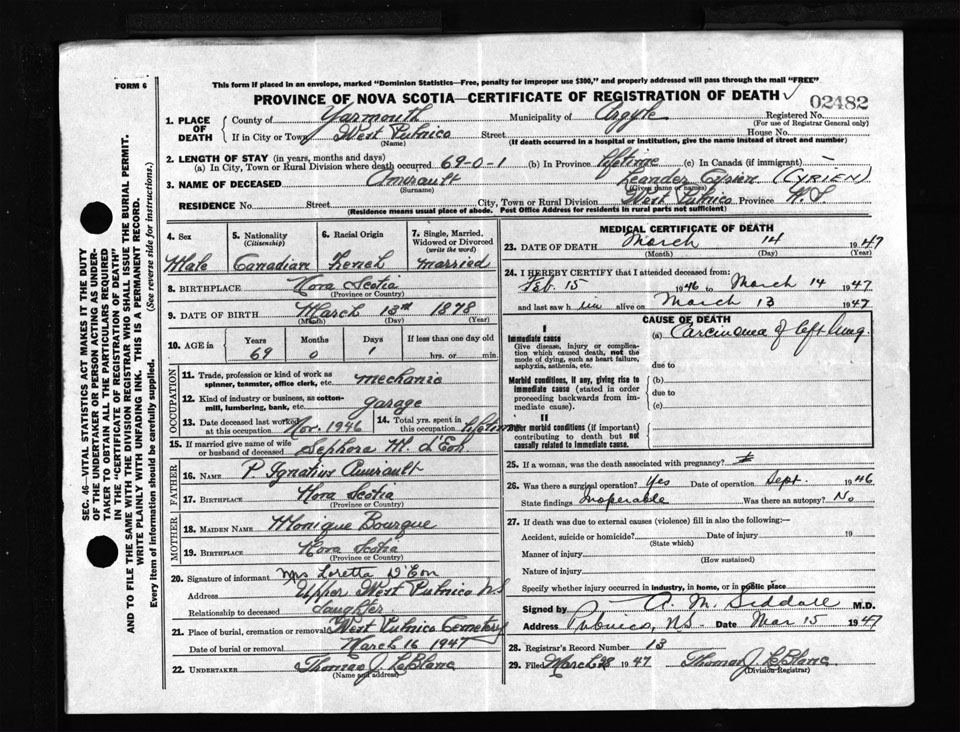 FORM 6
This form if placed in an envelope, marked "Dominion Statistics—Free, penalty for improper use $300," and properly addressed will pass through the mail "FREE"
PROVINCE OF NOVA SCOTIA—CERTIFICATE OF REGISTRATION OF DEATH
02482
1. PLACE OF DEATH
County of Yarmouth Municipality of Argyle Registered No.
(For use of Registrar General only)
If in City or Town West Pubnico Street House No.
(Name) (If death occurred in a hospital or institution, give the name instead of street and number)
2. LENGTH OF STAY (in years, months and days)
(a) In City, Town or Rural Division where death occurred 69-0-1 (b) In Province lifetime (c) In Canada (if immigrant) —
3. NAME OF DECEASED Amirault Leander Cyrien (CYRIEN)
(Surname) (Given name or names)
RESIDENCE No. Street City, Town or Rural Division West Pubnico Province N.S.
(Residence means usual place of abode. Post Office Address for residents in rural parts not sufficient)
4. Sex
Male
5. Nationality
(Citizenship)
Canadian
6. Racial Origin
French
7. Single, Married, Widowed or Divorced
(write the word)
married
8. BIRTHPLACE Nova Scotia
(Province or Country)
9. DATE OF BIRTH March 13th 1878
(Month) (Day) (Year)
10. AGE in
Years Months Days If less than one day old
69 0 1 hrs. or min.
OCCUPATION
11. Trade, profession or kind of work as spinner, teamster, office clerk, etc. mechanic
12. Kind of industry or business, as cotton-mill, lumbering, bank, etc. garage
13. Date deceased last worked at this occupation Nov. 1946
14. Total yrs. spent in this occupation lifetime
15. If married give name of wife or husband of deceased Sephora M. d'Eon
FATHER
16. NAME P. Ignatius Amirault
17. BIRTHPLACE Nova Scotia
(Province or Country)
MOTHER
18. MAIDEN NAME Monique Bourque
19. BIRTHPLACE Nova Scotia
(Province or Country)
20. Signature of informant Mrs Loretta D'Eon
Address Upper West Pubnico N.S
Relationship to deceased daughter
21. Place of burial, cremation or removal West Pubnico Cemetery
Date of burial or removal March 16 1947
22. UNDERTAKER Thomas J. LeBlanc
(Name and address)
MEDICAL CERTIFICATE OF DEATH
23. DATE OF DEATH March 14 1947
(Month) (Day) (Year)
24. I HEREBY CERTIFY that I attended deceased from:
Feb. 15 1946 to March 14 1947
and last saw him alive on March 13 1947
CAUSE OF DEATH
I
Immediate cause
Give disease, injury or complication which caused death, not the mode of dying, such as heart failure, asphyxia, asthenia, etc.
(a) Carcinoma of left lung.
due to
Morbid conditions, if any, giving rise to immediate cause (stated in order proceeding backwards from immediate cause).
(b)
due to
(c)
II
Other morbid conditions (if important) contributing to death but not causally related to immediate cause.
25. If a woman, was the death associated with pregnancy?
26. Was there a surgical operation? Yes Date of operation Sept. 1946
State findings Inoperable Was there an autopsy? No
27. If death was due to external causes (violence) fill in also the following:—
Accident, suicide or homicide? Date of injury 19
(State which)
Manner of injury
(How sustained)
Nature of injury
Specify whether injury occurred in industry, in home, or in public place
Signed by A. M. Siddall M.D.
Address Pubnico, N.S. Date Mar 15 1947
28. Registrar's Record Number 13
29. Filed March 28 1947 Thomas J. LeBlanc
(Division Registrar)
SEC. 46—VITAL STATISTICS ACT MAKES IT THE DUTY
OF THE UNDERTAKER OR PERSON ACTING AS UNDER-
TAKER TO OBTAIN ALL THE PARTICULARS REQUIRED
IN THE "CERTIFICATE OF REGISTRATION OF DEATH"
AND TO FILE THE SAME WITH THE DIVISION REGISTRAR WHO SHALL ISSUE THE BURIAL PERMIT.
WRITE PLAINLY WITH UNFADING INK. THIS IS A PERMANENT RECORD.
Every item of information should be carefully supplied. (See reverse side for instructions.)